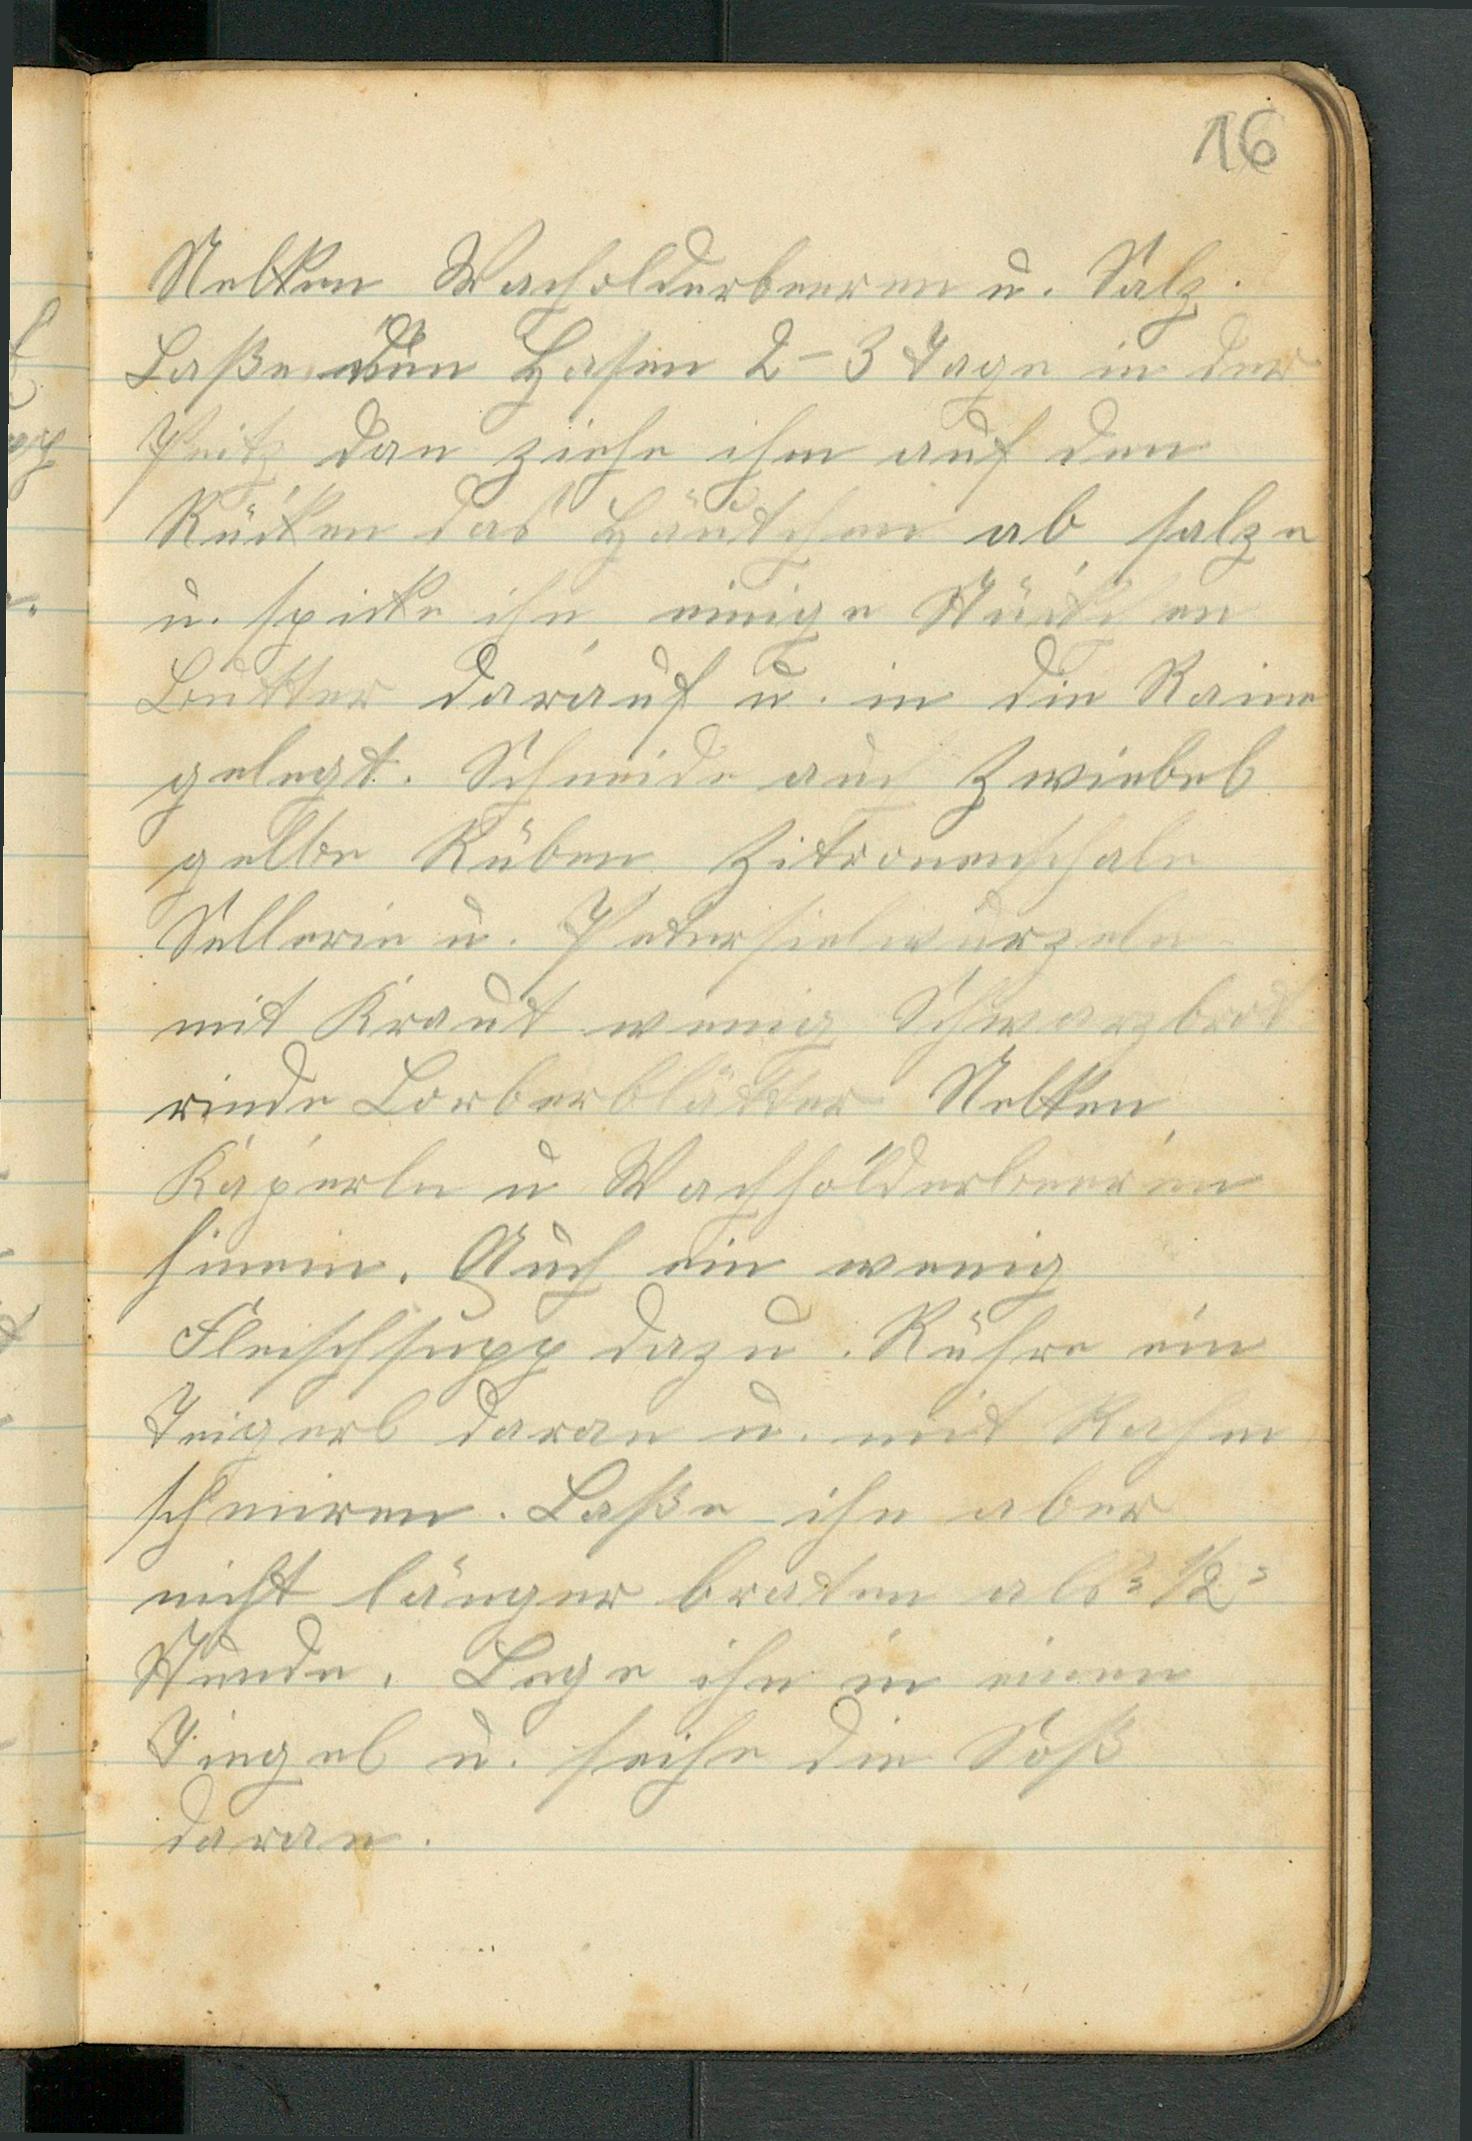 16
Nelken Wacholderbeeren u. Salz.
Laße den Hasen 2-3 Tage in der
Peitz dan ziehe ihm auf den
Rücken das Häutchen ab, salze
u. spicke ihn, einige Stückchen
Butter darauf u. in die Raine
gelegt. Schneide auch Zwiebel
gelbe Rüben Zitronenschale
Sellerie u. Petersielwurzeln
mit Kraut wenig Schwarzbrot
rinde Lorberblätter Nelken,
Kaperln u Wachholderbeeren
hinein. Auch ein wenig
Fleischsupp dazu. Rühre ein
Teigerl daran u. mit Rahm
schmiren. Laße ihn aber
nicht länger braten als 1/2
Stunde. Lege ihn in einen
Tiegel u. seihe die Soß
daran.